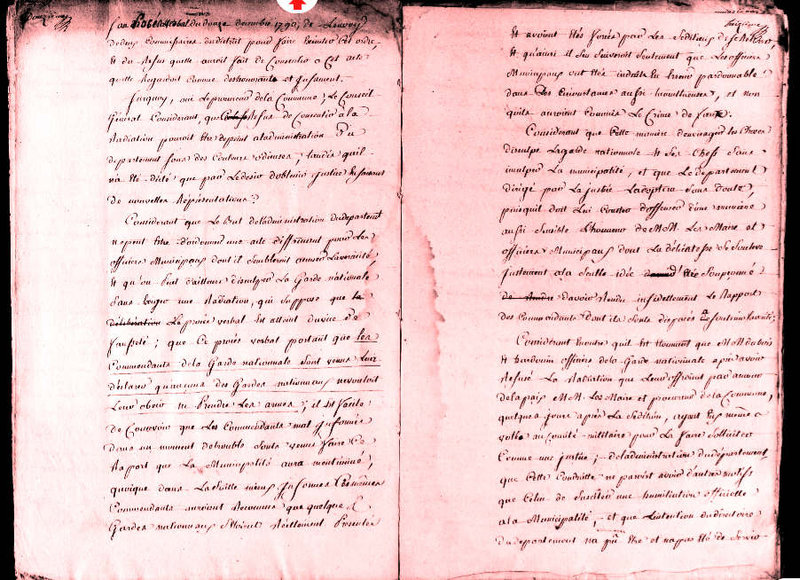 Douzieme
du douze decembre 1790, de Envoyer
dedeux Commissaires du district pour faire Executer cet ordre,
Et du Refus quelle auroit fait de Consentir a Cet acte
quelle Regardoit comme deshonorante et infament.
Surquoy, oui Le procureur de la Commune; Le Conseil
General Considerant, que Refus de Consentir a la
Radiation pouvoit être depeint a l'administration Du
departement sous des Couleurs odieuses; tandis quil
n'a été dicté que par le desir d'obtenir justice
de nouvelles Représentations?
Considerant que Le But de l'administration du departement
n'a peut être d'ordonner une acte diffamant pour Les
officiers Municipaux dont il sembleroit accuser La véracité;
Et qu'on peut d'ailleurs disculper La Garde nationale
sans Exiger une Radiation, qui suppose que
Le procés verbal Est atteint du vice De
Fausseté; que Ce procés verbal portait que les
Commandants de la Garde nationale sont venus Lui
declarer qu'aucuns des Gardes nationaux ne vouloit
Leur obeir ni Prendre Les armes; il Est facile
de Concevoir que Les Commandants mal Informés
dans un moment de trouble sont venus faire Ce
Raport que La Municipalité aura mentionné,
quoique dans La Suitte mieux Informés Ces mêmes
Commandants auroient Reconnus que quelques
Gardes nationaux S'étoient Réellement Presentés
Treizieme
Et avoient étés forcés par Les Seditieux
Et qu'ainsi il s'en suivroit Seulement que Les officiers
Municipaux ont étés induits En Erreur pardonnable
dans Des Circonstances aussi tumultueuses, et non
quils auroient Commis Le Crime de faux.
Considerant que Cette maniere d'envisager les Choses
disculpe La garde nationale Et Ses Chefs Sans
inculper La municipalité, et que Le departement
dirigé par La justice L'adoptera Sans doute,
puisquil doit Lui Couter d'offencer d'une maniere
aussi Sensible L'honneur de MM. Les Maire et
officiers Municipaux dont La délicatesse Se Souleve
justement a la Seulle idée d'être Soupçonné
d'avoir Rendu infidellement Le Rapport
des Commandants dont ils Sont
Considerant Encore quil Est étonnant que MM. dubois
Et Baudouin officiers de la Garde nationale après avoir
Refusé La Radiation que Leur offroient pour amour
de la paix MM. Les Maire et procureur de la Commune,
quelques jours après La Sedition, ayant Eux même
au Comité militaire pour La faire Solliciter
Comme une justice; de l'administration du département
que Cette Conduitte ne paroit avoir d'autres motifs
que Celui de Susciter une humiliation officielle
a la Municipalité, Et que L'intention du directoire
Du departement n'a pû être et n'a pas Eté de Servir